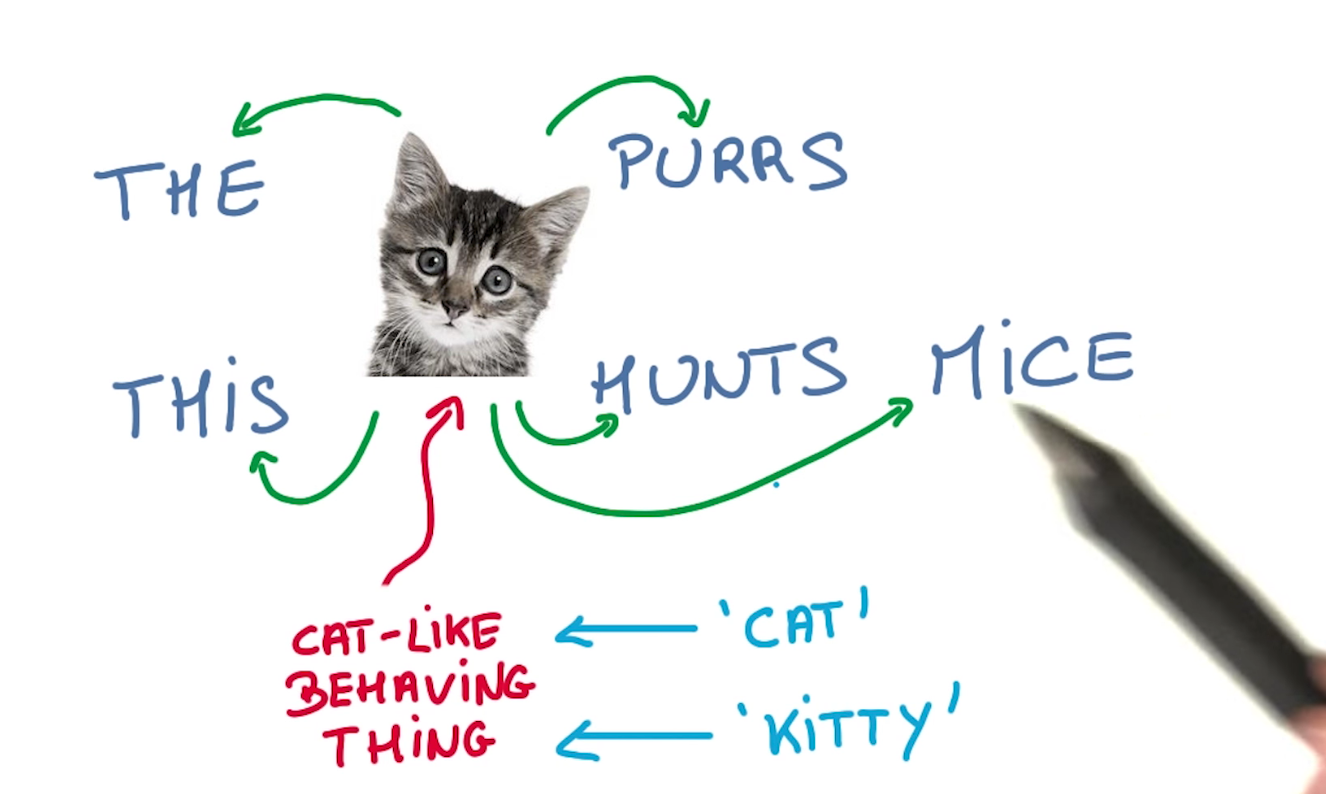 THE PURRS
THiS HUNTS MiCE
CAT-LiKE
BEHAViNG
THiNG
'CAT'
'KiTTY'